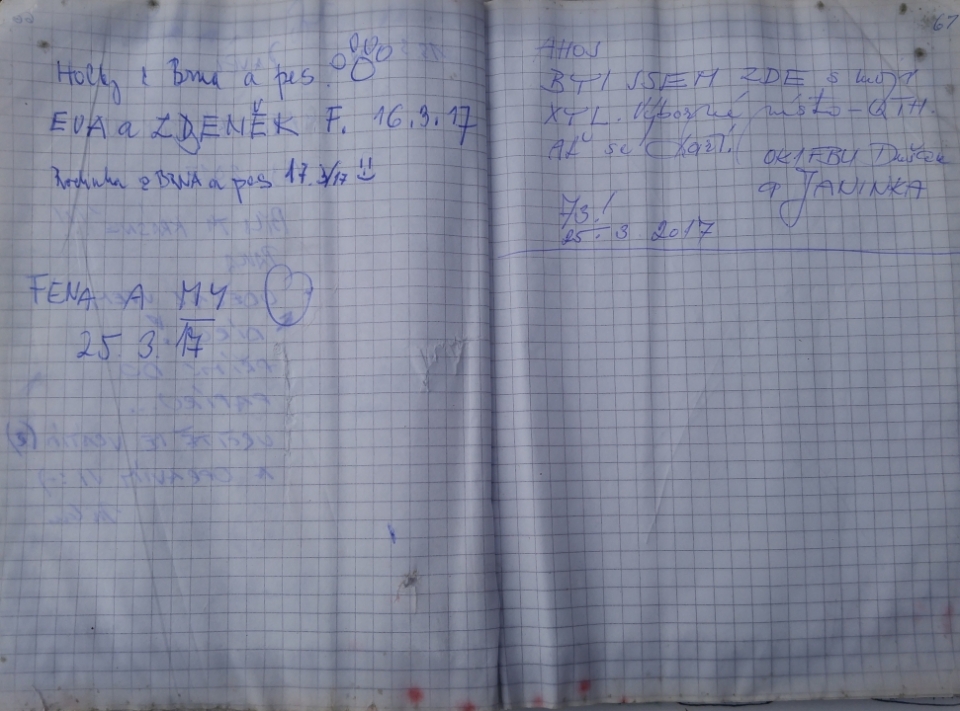 Holky z Brna a pes
EVA a ZDENĚK F. 16.3.17
Rodinka z BRNA a pes 17. 3/17
FENA A MY
25. 3. 17
67
AHOJ
BYL JSEM ZDE s mojí
XYL. Výborné místo - QTH.
Ať se daří!
OK1FBU Dušan
a JANINKA
73!
25. 3. 2017